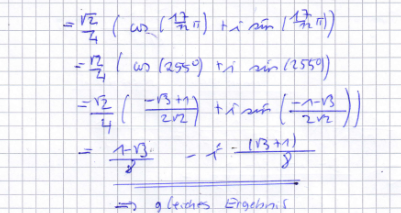 = √2/4 ( cos (17/12 π) + i sin (17/12 π))
= √2/4 ( cos (255°) + i sin (255°)
= √2/4 ( (-√3+1)/(2√2) + i sin ( (-1-√3)/(2√2) ))
= (1-√3)/8 - i (√3+1)/8
=> gleiches Ergebnis